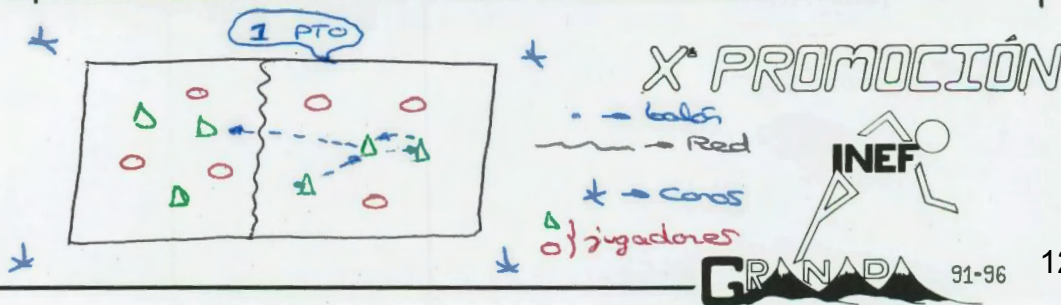 1 PTO
Xª PROMOCIÓN
balón
Red
Conos
jugadores
INEF
GRANADA
91-96
12